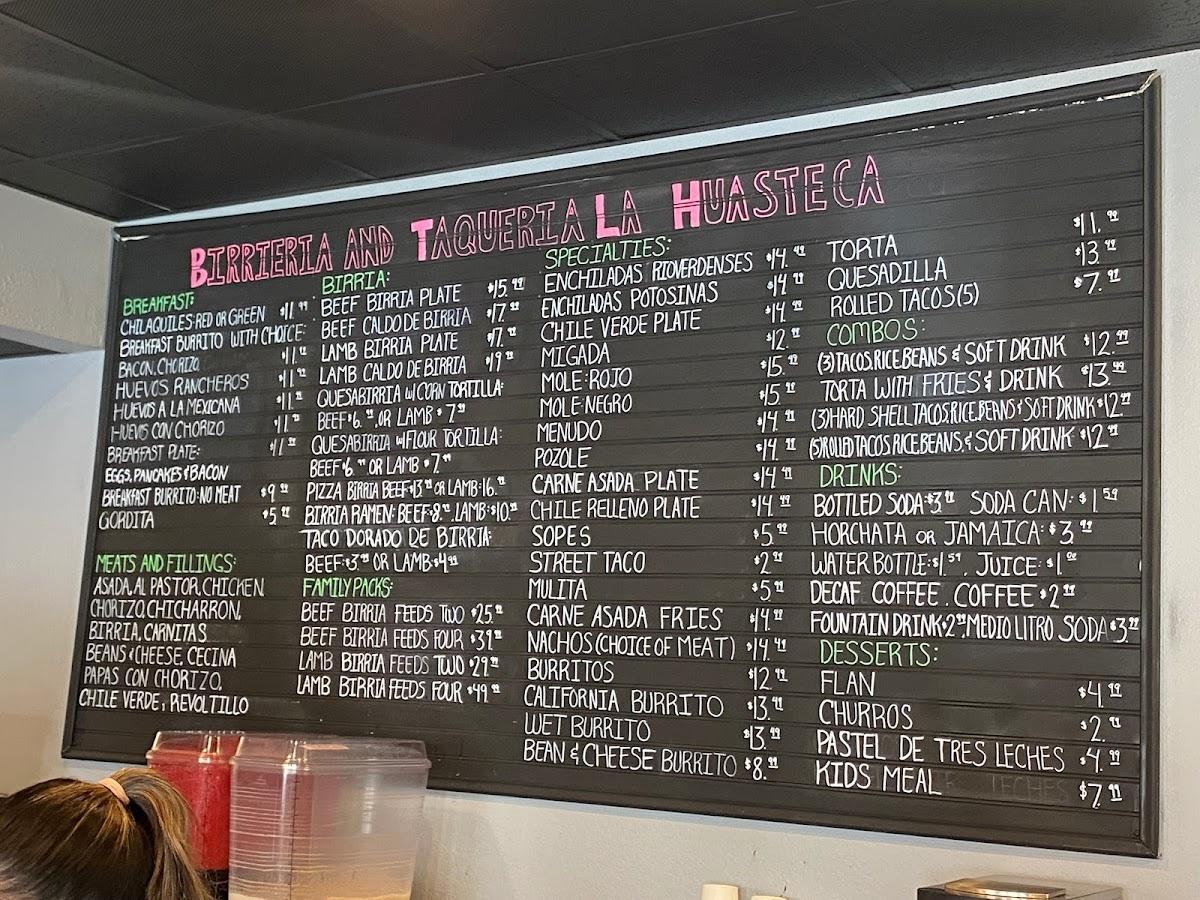 BIRRIERIA AND TAQUERIA LA HUASTECA
BREAKFAST:
CHILAQUILES: RED OR GREEN $11.99
BREAKFAST BURRITO WITH CHOICE:
BACON, CHORIZO $11.99
HUEVOS RANCHEROS $11.99
HUEVOS A LA MEXICANA $11.99
HUEVOS CON CHORIZO $11.99
BREAKFAST PLATE: $11.99
EGGS, PANCAKES & BACON
BREAKFAST BURRITO: NO MEAT $9.99
GORDITA $5.99
MEATS AND FILLINGS:
ASADA, AL PASTOR, CHICKEN,
CHORIZO, CHICHARRON,
BIRRIA, CARNITAS
BEANS & CHEESE, CECINA
PAPAS CON CHORIZO,
CHILE VERDE, REVOLTILLO
BIRRIA:
BEEF BIRRIA PLATE $15.99
BEEF CALDO DE BIRRIA $17.99
LAMB BIRRIA PLATE $17.99
LAMB CALDO DE BIRRIA $19.99
QUESABIRRIA W/CORN TORTILLA:
BEEF $6.99 OR LAMB $7.99
QUESABIRRIA W/FLOUR TORTILLA:
BEEF $6.99 OR LAMB $7.99
PIZZA BIRRIA BEEF $15.99 OR LAMB: 16.99
BIRRIA RAMEN: BEEF: $8.99, LAMB: $10.99
TACO DORADO DE BIRRIA:
BEEF: $3.99 OR LAMB: $4.99
FAMILY PACKS:
BEEF BIRRIA FEEDS TWO $25.99
BEEF BIRRIA FEEDS FOUR $39.99
LAMB BIRRIA FEEDS TWO $29.99
LAMB BIRRIA FEEDS FOUR $49.99
SPECIALTIES:
ENCHILADAS RIOVERDENSES $14.99
ENCHILADAS POTOSINAS $14.99
CHILE VERDE PLATE $14.99
MIGADA $12.99
MOLE: ROJO $15.99
MOLE: NEGRO $15.99
MENUDO $14.99
POZOLE $14.99
CARNE ASADA PLATE $14.99
CHILE RELLENO PLATE $14.99
SOPES $5.99
STREET TACO $2.99
MULITA $5.99
CARNE ASADA FRIES $14.99
NACHOS (CHOICE OF MEAT) $14.99
BURRITOS $12.99
CALIFORNIA BURRITO $13.99
WET BURRITO $13.99
BEAN & CHEESE BURRITO $8.99
TORTA $11.99
QUESADILLA $13.99
ROLLED TACOS (5) $7.99
COMBOS:
(3) TACOS, RICE, BEANS & SOFT DRINK $12.99
TORTA WITH FRIES & DRINK $13.99
(3) HARD SHELL TACOS, RICE, BEANS & SOFT DRINK $12.99
(5) ROLLED TACOS, RICE, BEANS, & SOFT DRINK $12.99
DRINKS:
BOTTLED SODA: $3.99 SODA CAN: $1.59
HORCHATA OR JAMAICA: $3.99
WATER BOTTLE: $1.59, JUICE: $1.99
DECAF COFFEE, COFFEE $2.99
FOUNTAIN DRINK $2.99, MEDIO LITRO SODA $3.99
DESSERTS:
FLAN $4.99
CHURROS $2.99
PASTEL DE TRES LECHES $4.99
KIDS MEAL $7.99